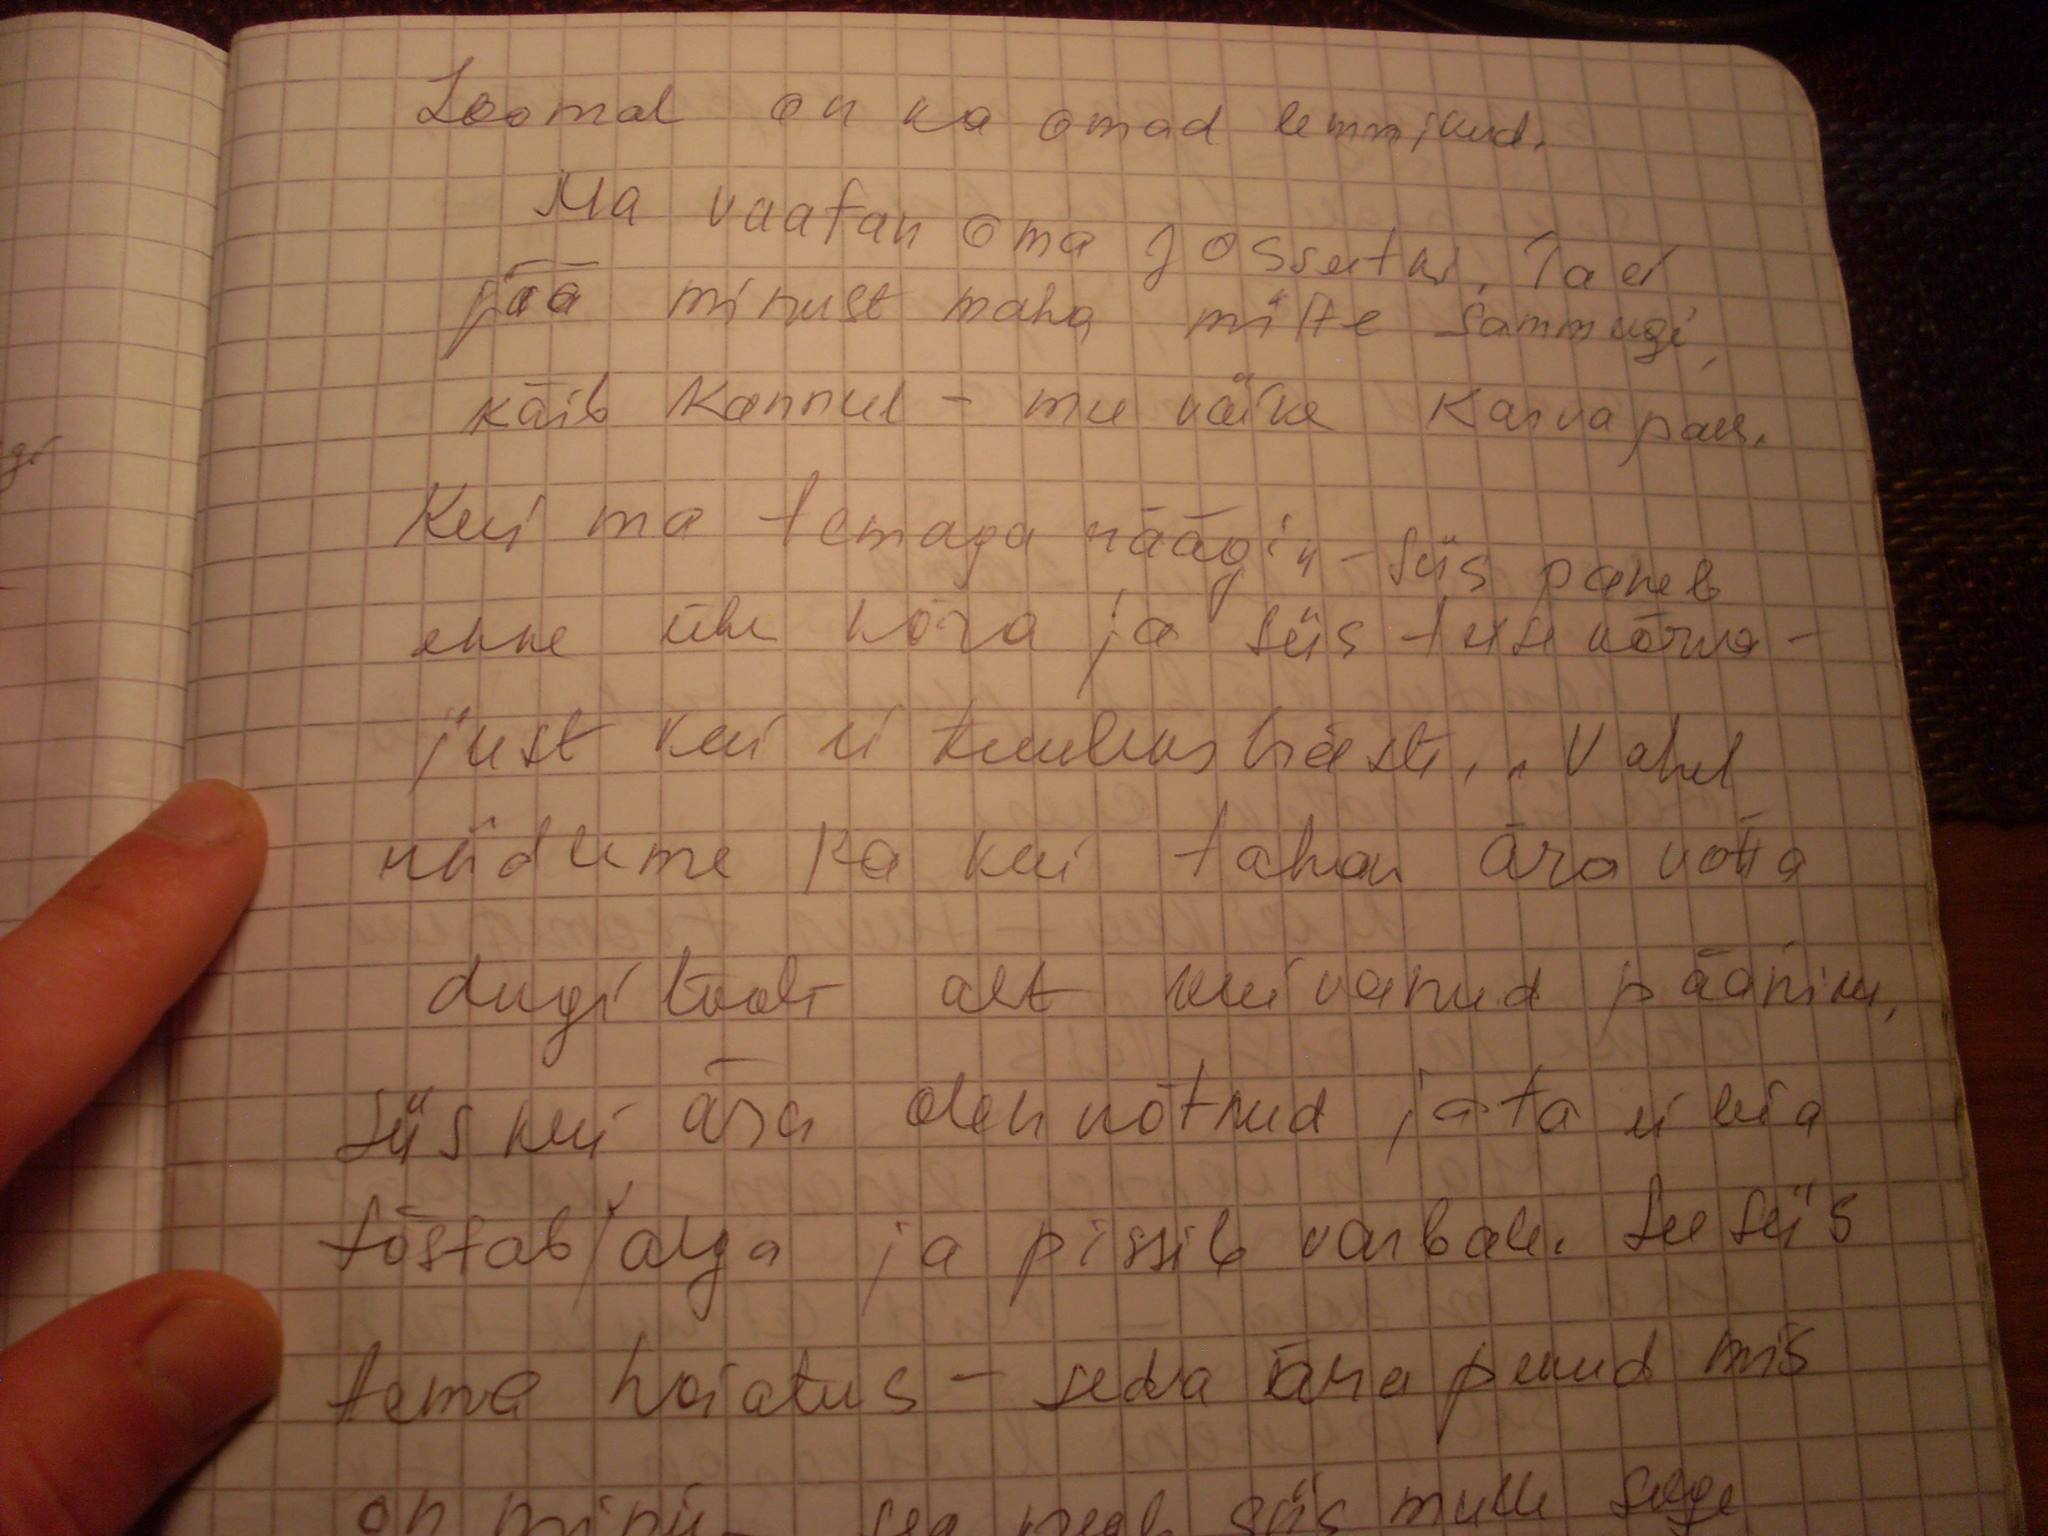 Loomal on ka omad lemmikud.
Ma vaatan oma Jossutki. Ta ei
jää minust maha mitte sammugi,
käib kannul - mu väike karvapall.
Kui ma temaga räägin - siis paneb
enne ühe kõrva ja siis teise kõrva -
just kui ei kuuleks hästi. Vahel
riidleme ka kui tahan ära võtta
dugi laualt alt kuivanud pääniku,
siis kui ära olen võtnud ja ta ei leia
tõstab jalga ja pissib varbale. See siis
tema hoiatus - seda ära penud mis
on minu - sea peab siis mulle selge